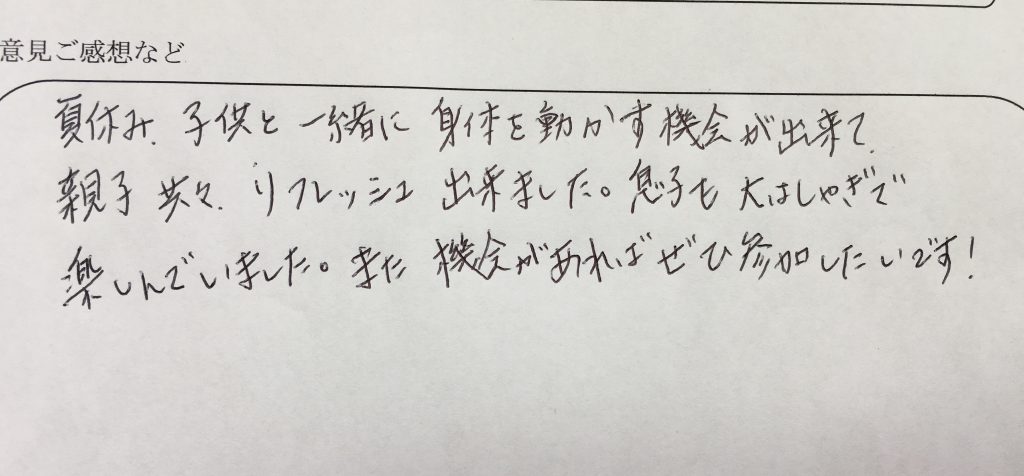 意見ご感想など
夏休み、子供と一緒に身体を動かす機会が出来て、
親子共々、リフレッシュ出来ました。息子も大はしゃぎで
楽しんでいました。また機会があればぜひ参加したいです!